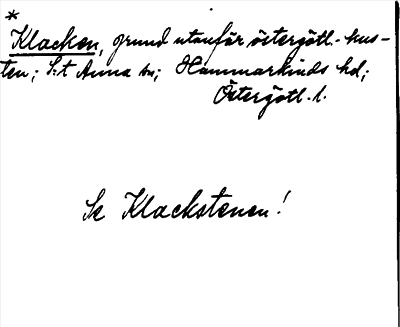 *
Klacken, grund utanför östergötl. kus-
ten; S:t Anna sn; Hammarkinds hd;
Östergötl. l.
Se Klackstenen!